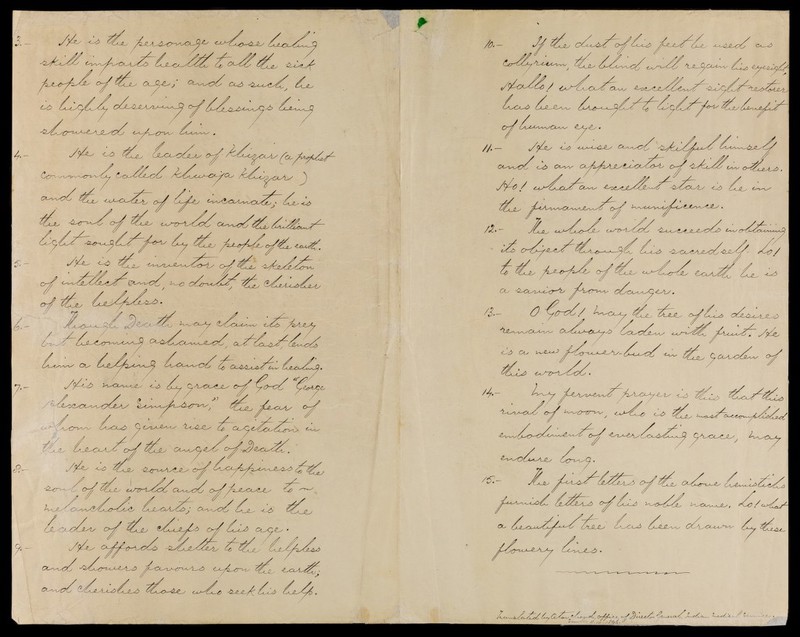 3.- He is the personage whose healing
skill imparts health to all the sick
people of the age; and as such, he
is highly deserving of blessings being
showered upon him.
4.- He is the leader of Khizar (a prophet
commonly called Khwaja Khizar)
and the water of life incarnate; he is
the soul of the world and the brilliant
light sought for by the people of the earth.
5.- He is the inventor of the skeleton
of intellect and, no doubt, the cherisher
of the helpless.
6.- Though Death may claim its prey
but becoming ashamed, at last, lends
him a helping hand to assist in healing.
7.- His name is by grace of God "George
Alexander Simpson," the fear of
whom has given rise to agetation in
the heart of the angel of Death.
8.- He is the source of happiness to the
soul of the world and of peace to
melancholic hearts; and he is the
leader of the chiefs of his age.
9.- He affords shelter to the helpless
and showers favours upon the earth;
and cherishes those who seek his help.
10.- If the dust of his feet be used as
collyrium, the blind will regain his eyesight,
Hallo! what an excellent sight restorer
has been brought to light for the benefit
of human eye.
11.- He is wise and skilful himself
and is an appreciator of skill in others.
Ho! what an excellent star is he in
the firmament of munificence.
12.- The whole world succeeds in obtaining
its object through his sacred self. Lo!
to the people of the whole earth he is
a savior from danger.
13.- O God! may the tree of his desires
remain always laden with fruit. He
is a new flower-bud in the garden of
this world.
14.- My fervent prayer is this that this
rival of moon, who is the most accomplished
embodiment of everlasting grace, may
endure long.
15.- The first letters of the above hemistichs
furnish letters of his noble name. Lo! what
a beautiful tree has been drawn by these
flowery lines.
Translated by
office of Director General Indian